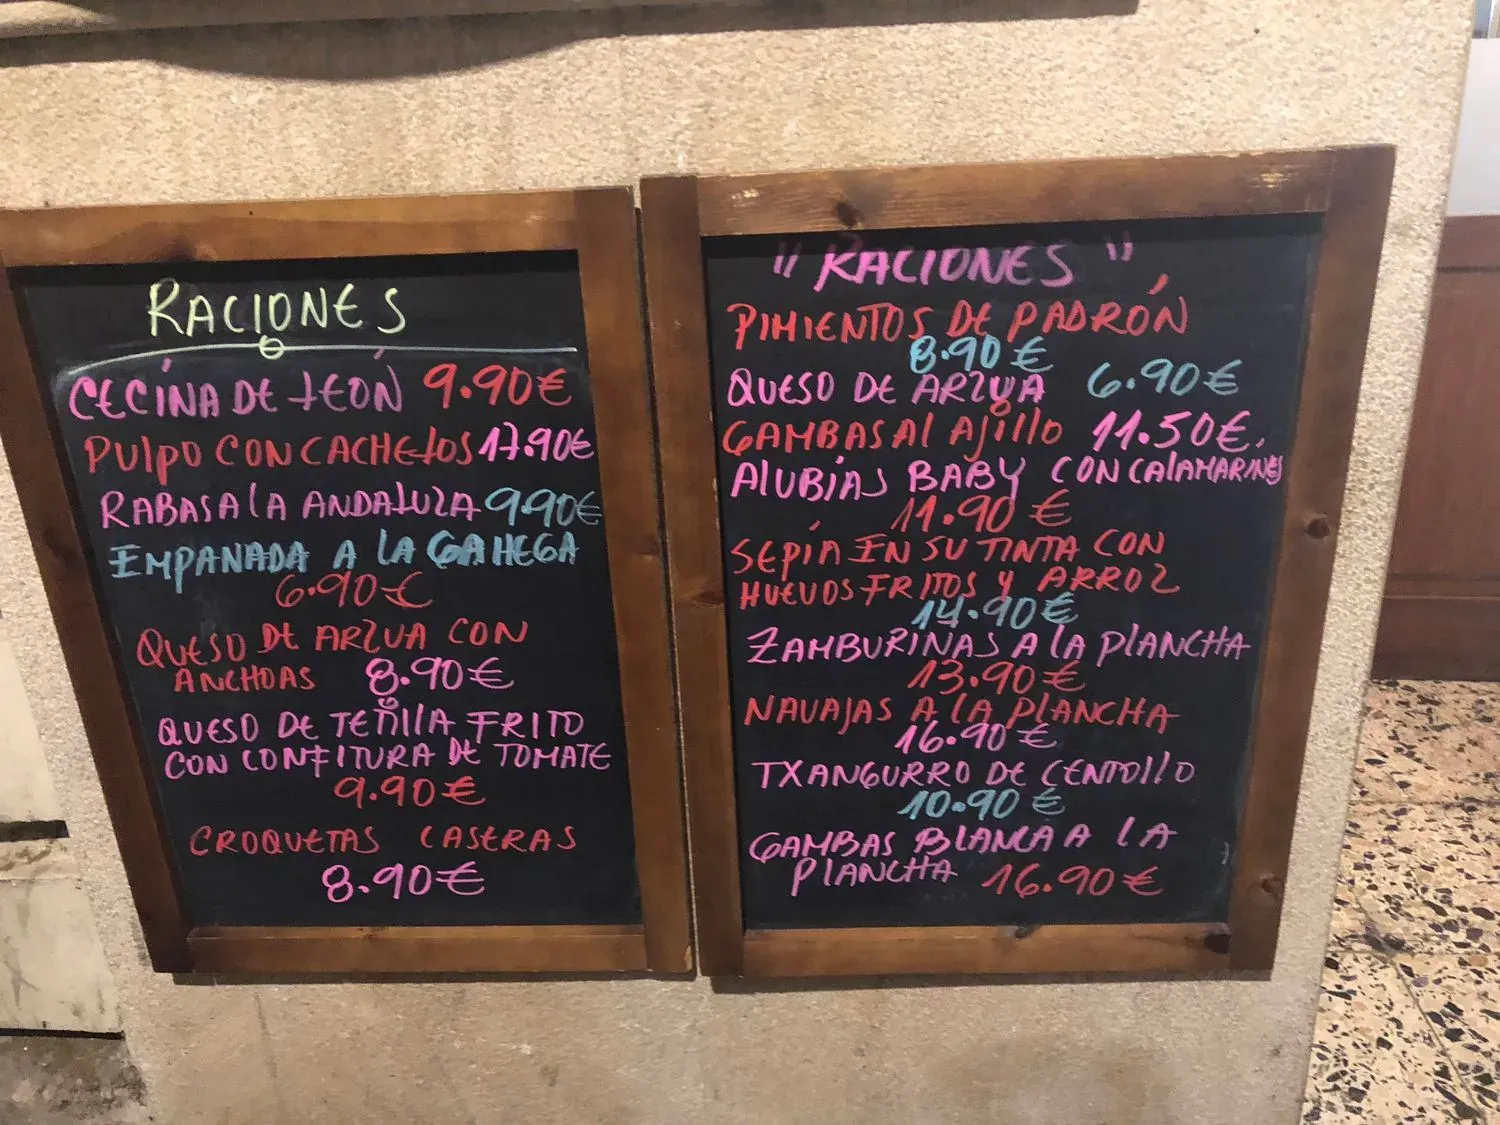 RACIONES
CECÍNA DE LEÓN 9.90€
PULPO CON CACHELOS 17.90€
RABAS A LA ANDALUZA 9.90€
EMPANADA A LA GALLEGA
6.90€
QUESO DE ARZUA CON
ANCHOAS 8.90€
QUESO DE TETILLA FRITO
CON CONFITURA DE TOMATE
9.90€
CROQUETAS CASERAS
8.90€
"RACIONES"
PIMIENTOS DE PADRÓN
8.90€
QUESO DE ARZUA 6.90€
GAMBAS AL AJILLO 11.50€.
ALUBÍAS BABY CON CALAMARINES
11.90€
SEPÍA EN SU TINTA CON
HUEVOS FRITOS Y ARROZ
14.90€
ZAMBURINAS A LA PLANCHA
13.90€
NAVAJAS A LA PLANCHA
16.90€
TXANGURRO DE CENTOLLO
10.90€
GAMBAS BLANCA A LA
PLANCHA 16.90€